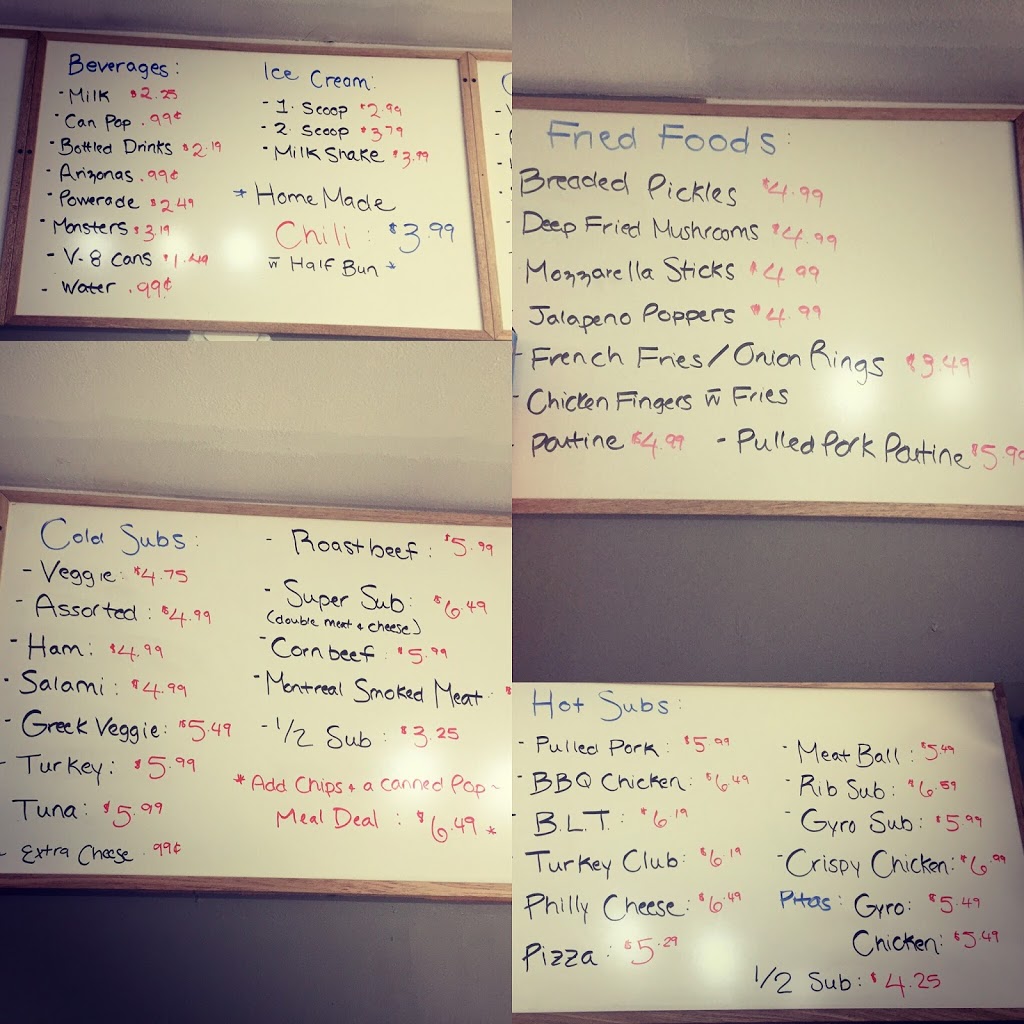 Beverages:
- Milk $2.25
- Can Pop .99¢
- Bottled Drinks $2.19
- Arizonas .99¢
- Powerade $2.49
- Monsters $3.19
- V-8 Cans $1.49
- Water .99¢
Ice Cream:
- 1. Scoop $2.99
- 2. Scoop $3.79
- Milk Shake $3.99
* Home Made
Chili : $3.99
w Half Bun *
Fried Foods:
Breaded Pickles $4.99
Deep Fried Mushrooms $4.99
Mozzarella Sticks $4.99
Jalapeno Poppers $4.99
- French Fries/Onion Rings $3.49
- Chicken Fingers w Fries
Poutine $4.99 - Pulled Pork Poutine $5.99
Cold Subs:
- Veggie: $4.75
- Assorted: $4.99
- Ham: $4.99
- Salami: $4.99
- Greek Veggie: $5.49
- Turkey: $5.99
Tuna: $5.99
- Extra Cheese .99¢
- Roastbeef: $5.99
- Super Sub: $6.49
(double meat & cheese)
- Cornbeef: $5.99
- Montreal Smoked Meat
- 1/2 Sub: $3.25
* Add Chips + a canned Pop ~
Meal Deal : $6.49 *
Hot Subs:
- Pulled Pork: $5.99
- BBQ Chicken: $6.49
- B.L.T.: $6.19
Turkey Club: $6.19
Philly Cheese: $6.49
Pizza: $5.29
- Meat Ball: $5.49
- Rib Sub: $6.59
- Gyro Sub: $5.99
- Crispy Chicken: $6.99
Pitas: Gyro: $5.49
Chicken: $5.49
1/2 Sub: $4.25